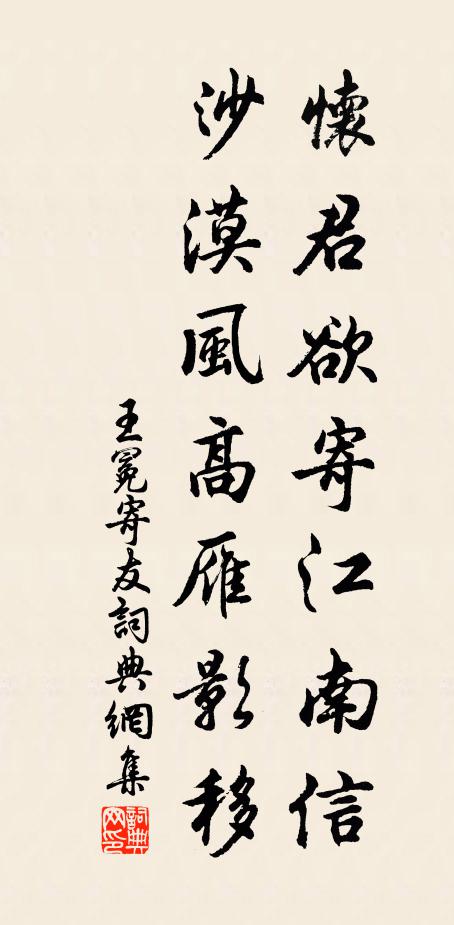 懷君欲寄江南信
沙漠風高雁影移
王冕寄友詞典網集
詞典網印